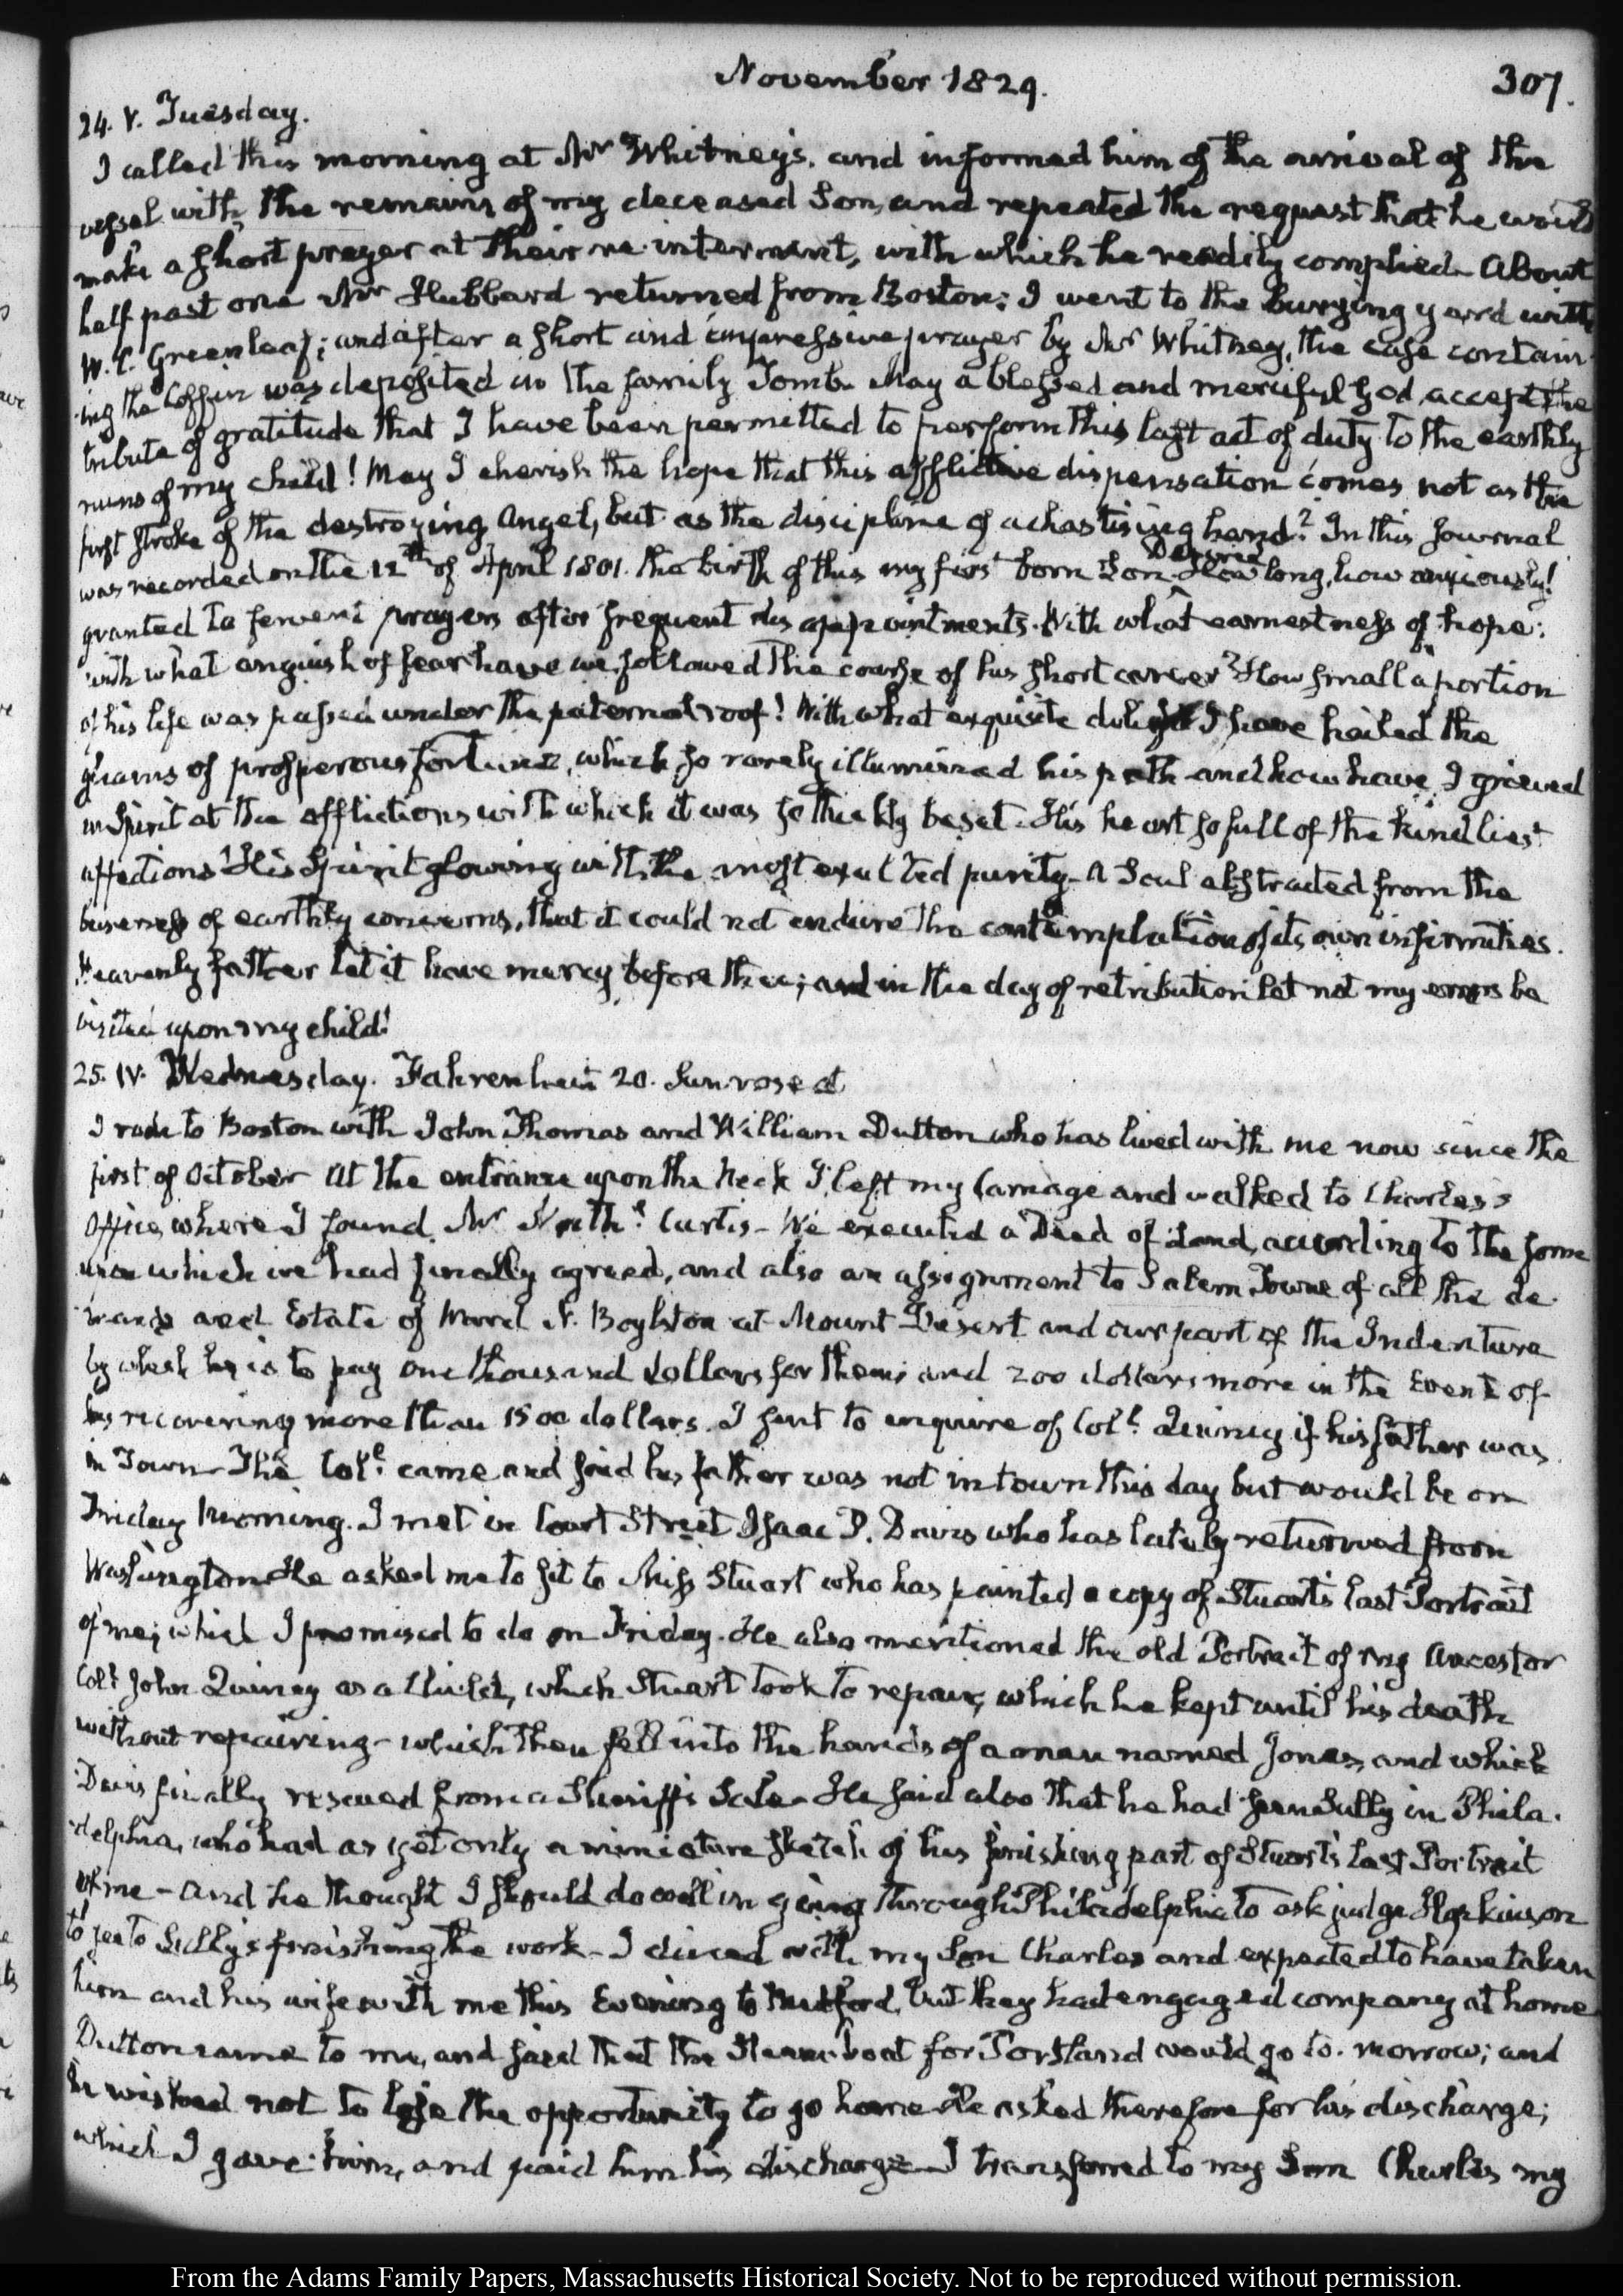 November 1829.
307.
24. V. Tuesday.
I called this morning at Mr Whitney's, and informed him of the arrival of the
vessel with the remains of my deceased Son, and repeated the request that he would
make a short prayer at their re-interment, with which he readily complied. About
half past one Mr Hubbard returned from Boston; I went to the burying yard with
W. C. Greenleaf; and after a short and impressive prayer by Mr Whitney, the case contain-
-ing the Coffin was deposited in the family Tomb. May a blessed and merciful God accept the
tribute of gratitude that I have been permitted to perform this last act of duty to the earthly
ruins of my child! May I cherish the hope that this afflictive dispensation comes not as the
first stroke of the destroying Angel, but as the discipline of a chastising hand? In this Journal
was recorded on the 12th of April 1801. the birth of this my first born Son. Desired
How long, how anxiously!
granted to fervent prayers after frequent disappointments. With what earnestness of hope;
with what anguish of fear have we followed the course of his short career? How small a portion
of his life was passed under the paternal roof! With what exquisite delight I have hailed the
gleams of prosperous fortune, which so rarely illumined his path and how have I grieved
in Spirit at the afflictions with which it was so thickly beset. His heart so full of the kindliest
affections! His Spirit glowing with the most exalted purity. A Soul abstracted from the
baseness of earthly concerns, that it could not endure the contemplation of its own infirmities.
Heavenly father let it have mercy before thee; and in the day of retribution let not my errors be
visited upon my child!
25. IV. Wednesday. Fahrenheit 20. Sun rose at
I rode to Boston with John Thomas and William Dutton who has lived with me now since the
first of October At the entrance upon the Neck I left my Carriage and walked to Charles's
Office, where I found Mr Nathl. Curtis - We executed a Deed of Land, according to the form
upon which we had finally agreed, and also an assignment to Salem Towne of all the de-
mands and Estate of Ward N. Boylston at Mount Desert and our part of the Indenture
by which he is to pay one thousand dollars for them; and 200 dollars more in the Event of
his recovering more than 1500 dollars. I sent to enquire of Coll. Quincy if his father was
in Town - The Coll. came and said his father was not in town this day but would be on
Friday Morning. I met in Court Street Isaac P. Davis who has lately returned from
Washington He asked me to sit to Miss Stuart who has painted a copy of Stuart's last Portrait
of me; which I promised to do on Friday. He also mentioned the old Portrait of my Ancestor
Coll. John Quincy as a Child, which Stuart took to repair, which he kept until his death
without repairing - which then fell into the hands of a man named Jones, and which
Davis finally rescued from a Sheriff's Sale - He said also that he had seen Sully in Phila-
-delphia, who had as yet only a miniature sketch of his finishing part of Stuart's last Portrait
of me - and he thought I should do well in going through Philadelphia to ask judge Hopkinson
to see to Sully's finishing the work - I dined with my Son Charles and expected to have taken
him and his wife with me this Evening to Medford, but they had engaged company at home
Dutton came to me, and said that the Steam-boat for Portland would go to-morrow; and
he wished not to lose the opportunity to go home He asked therefore for his discharge;
which I gave him, and paid him his discharge - I transferred to my Son Charles my
From the Adams Family Papers, Massachusetts Historical Society. Not to be reproduced without permission.